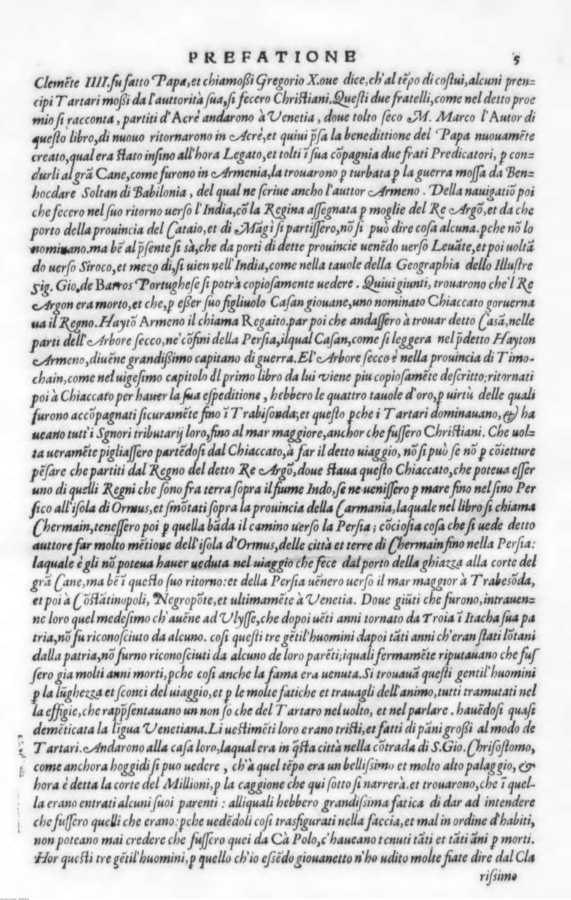 PREFATIONE 5
Clemẽte IIII. fu fatto Papa, et chiamoßi Gregorio X. oue dice, ch'al tẽpo di costui, alcuni pren=
cipi Tartari moßi da l'auttorità sua, si fecero Christiani. Questi due fratelli, come nel detto proe
mio si racconta, partiti d'Acrè andarono à Venetia, doue tolto seco M. Marco l'Autor di
questo libro, di nuouo ritornarono in Acrè, et quiui p̃sa la benedittione del Papa nuouamẽte
creato, qual era stato insino all'hora Legato, et tolti ĩ sua cõpagnia due frati Predicatori, p con=
durli al grã Cane, come furono in Armenia, la trouarono p turbata p la guerra mossa da Ben=
hocdare Soltan di Babilonia, del qual ne scriue ancho l'auttor Armeno. Della nauigatiõ poi
che fecero nel suo ritorno uerso l'India, cõ la Regina assegnata p moglie del Re Argõ, et da che
porto della prouincia del Cataio, et di Mãgi si partissero, nõ si può dire cosa alcuna. pche nõ lo
nominano. ma bẽ al p̃sente si sà, che da porti di dette prouincie uenẽdo uerso Leuãte, et poi uoltã
do uerso Siroco, et mezo di, si uien nell'India, come nella tauole della Geographia dello Illustre
Sig. Gio. de Barros Portughese si potrà copiosamente uedere. Quiui giunti, trouarono che'l Re
Argon era morto, et che, p esser suo figliuolo Casan giouane, uno nominato Chiaccato goruerna
ua il Regno. Haytõ Armeno il chiama Regaito. par poi che andassero à trouar detto Casã, nelle
parti dell'Arbore secco, ne' cõfini della Persia, ilqual Casan, come si leggera nel p̃detto Hayton
Armeno, diuẽne grandißimo capitano di guerra. El'Arbore secco è nella prouincia di Timo-
chain, come nel uigesimo capitolo d̃l primo libro da lui viene piu copiosamẽte descritto: ritornati
poi à Chiaccato per hauer la sua espeditione, hebbero le quattro tauole d'oro, p uirtù delle quali
furono accõpagnati sicuramẽte fino ĩ Trabisonda, et questo pche i Tartari dominauano, & ha
ueano tutt'i Sgnori tributarij loro, fino al mar maggiore, anchor che fussero Christiani. Che uol=
ta ueramẽte pigliassero partẽdosi dal Chiaccato, à far il detto uiaggio, nõ si può se nõ p cõietture
pẽsare che partiti dal Regno del detto Re Argõ, doue staua questo Chiaccato, che poteua esser
uno di quelli Regni che sono fra terra sopra il fiume Indo, se ne uenissero p mare fino nel sino Per
sico all'isola di Ormus, et smõtati sopra la prouincia della Carmania, laquale nel libro si chiama
Chermain, tenessero poi p quella bãda il camino uerso la Persia; cõciosia cosa che si uede detto
auttore far molto mẽtione dell'isola d'Ormus, delle città et terre di Chermain fino nella Persia:
laquale è gli nõ poteua hauer ueduta nel uiaggio che fece dal porto della ghiazza alla corte del
grã Cane, ma bẽ ĩ questo suo ritorno: et della Persia uẽnero uerso il mar maggior à Trabesõda,
et poi à Cõstãtinopoli, Negropõte, et ultimamẽte à Venetia. Doue giũti che furono, intrauen=
ne loro quel medesimo ch'auẽne ad Vlysse, che dopoi uẽti anni tornato da Troia ĩ Itacha sua pa
tria, nõ fu riconosciuto da alcuno. cosi questi tre gẽtil'huomini dapoi tãti anni ch'eran stati lõtani
dalla patria, nõ furno riconosciuti da alcuno de loro parẽti; iquali fermamẽte riputauano che fus
sero gia molti anni morti, pche cosi anche la fama era uenuta. Si trouauã questi gentil'huomini
p la lũghezza et sconci del uiaggio, et p le molte fatiche et trauagli dell'animo, tutti tramutati nel
la effigie, che rapp̃sentauano un non so che del Tartaro nel uolto, et nel parlare. hauẽdosi quasi
demẽticata la ligua Venetiana. Li uestimẽti loro erano tristi, et fatti di pãni großi al modo de
Tartari. Andarono alla casa loro, laqual era in q̃sta città nella cõtrada di S. Gio. Chrisostomo,
come anchora hoggidi si puo uedere, ch'à quel tẽpo era un bellissimo et molto alto palaggio, &
hora è detta la corte del Millioni, p la caggione che qui sotto si narrerà. et trouarono, che ĩ quel-
la erano entrati alcuni suoi parenti: alliquali hebbero grandissima fatica di dar ad intendere
che fussero quelli che erano: pche uedẽdoli cosi trasfigurati nella faccia, et mal in ordine d'habiti,
non poteano mai credere che fussero quei da Cà Polo, c'haueano tenuti tãti et tãti ãni p morti.
Hor questi tre gẽtil'huomini, p quello ch'io essẽdo giouanetto n'ho udito molte fiate dire dal Cla
rissimo